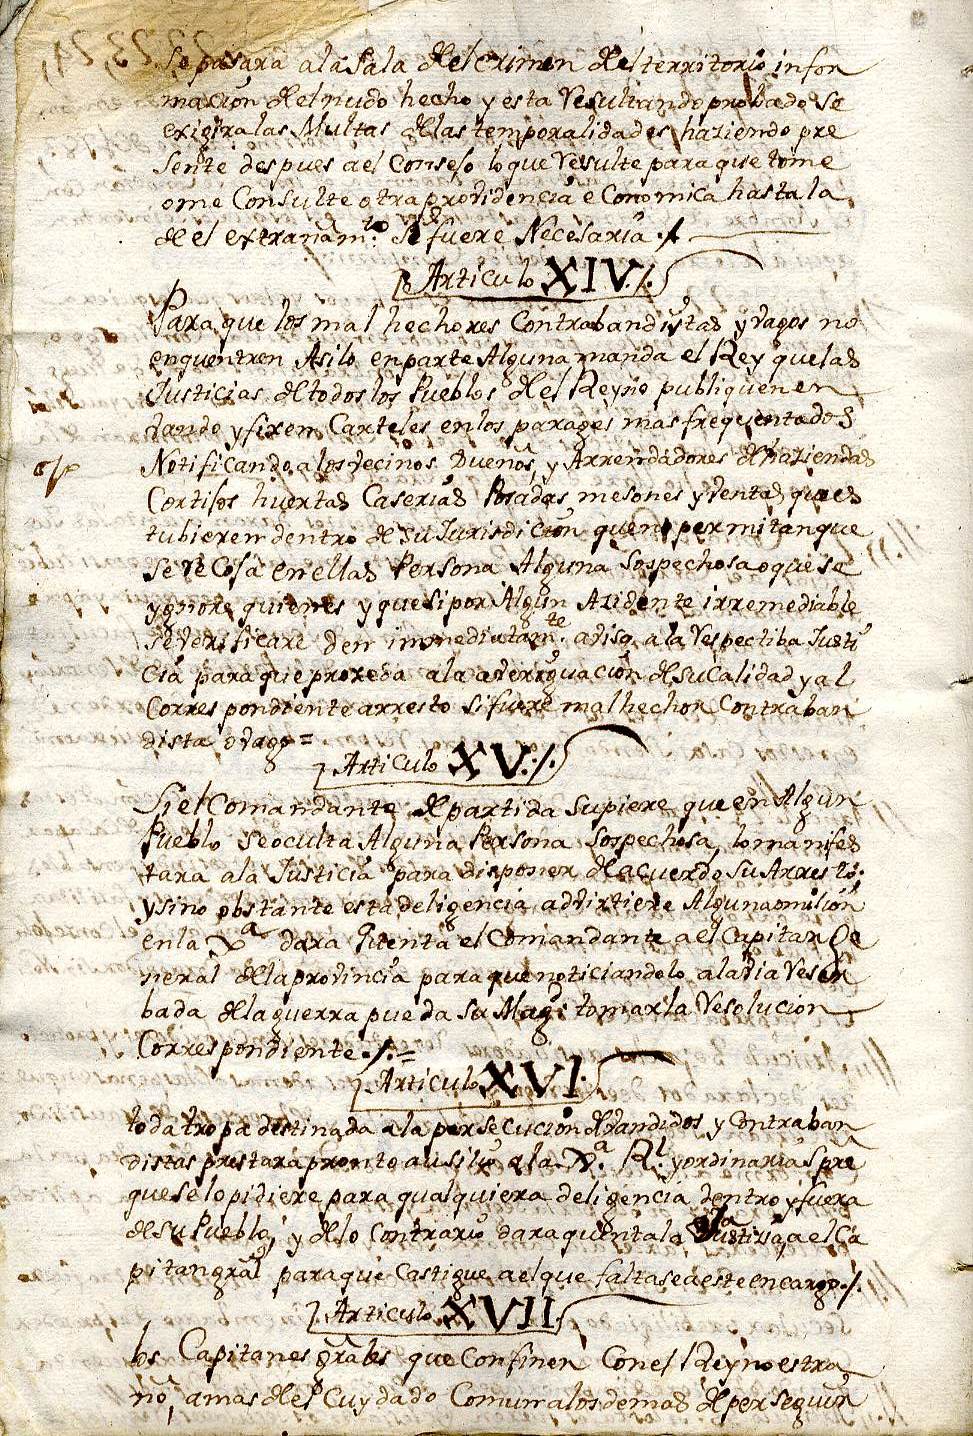 Se pasara a la Sala del crimen del territorio infor
macion del nudo hecho y esta Resultando probado se
exigira las Multas de las temporalidades haziendo pre
sente despues a el Consejo lo que Resulte para que tome
ome Consulte otra providencia e Conomica hasta la
de el extrañam.to Si fuere Necesaria ./.
Articulo XIV./.
Para que los mal hechores Contrabandistas y vagos no
enquentren Asilo en parte Alguna manda el Rey que las
Justicias de todos los Pueblos de el Reyno publiquen en
vando y fixen Carteles en los parages mas freqüentados
Notificando a los vecinos Dueños y Arrendadores de haziendas
Cortijos huertas Caserias Posadas mesones y ventas que es
tubieren dentro de su Jurisdicion que no permitan que
se re Coja en ellas Persona Alguna Sospechosa o que se
ygnore quienes y que si por Algun Azidente irremediable
se verificare den inmediatam.te aviso a la Respectiba Justi
cia para que proceda a la averiguacion de su Calidad y al
Correspondiente arresto si fuere malhechor Contraban
dista o vago =
Articulo XV./.
Si el Comandante de partida supiere que en Algun
Pueblo se oculta Alguna Persona Sospechosa, lo manifes
tara a la Justicia para disponer de acuerdo su Arresto.
y si no obstante esta deligencia advirtiere Alguna omision
en la Xa dara Quenta el Comandante a el Capitan Ge
neral de la provincia para que noticiandolo a la via Reser
bada de la guerra pueda su Mag.d tomar la Resolucion
Correspondiente ./. =
Articulo XVI.
toda tropa destinada a la persecucion de vandidos y Contraban
distas prestara pronto ausilio a la Xa. Rl. y ordinaria Spre
que se lo pidiere para qualquiera deligencia dentro y fuera
de su Pueblo, y de lo Contrario dara quenta la Justicia, a el Ca
pitan gral para que Castigue a el que faltase a este encargo./.
Articulo XVII
los Capitanes grales que Confinen Con el Reyno estra
ño, a mas de el Cuydado Comun a los demas de perseguir